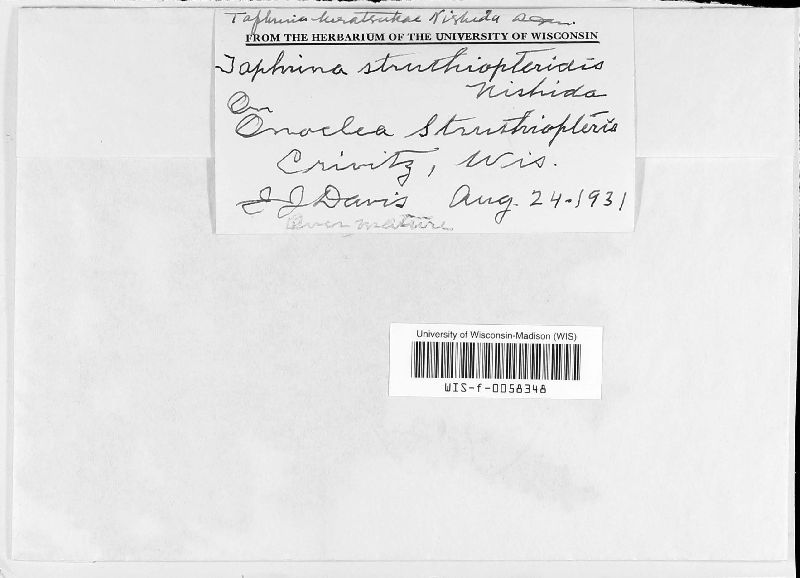 Taphrina hiratsukae Nishida
FROM THE HERBARIUM OF THE UNIVERSITY OF WISCONSIN
Taphrina struthiopteridis
Nishida
On
Onoclea Struthiopteris
Crivitz, Wis.
J J Davis Aug. 24.1931
Over mature
University of Wisconsin-Madison (WIS)
WIS-f-0058348